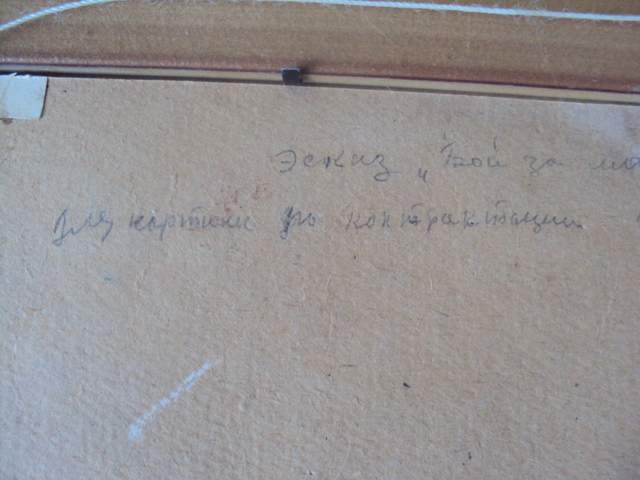 Эскиз „Бой за
для картины по контрактации